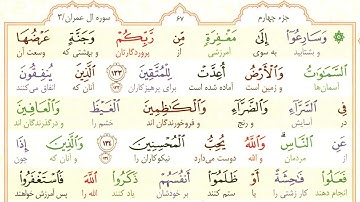 جزء چهارم ۶۷ سوره آل عمران/۳
وَسَارِعُوا إِلَىٰ مَغْفِرَةٍ مِن رَبِّكُمْ وَجَنَّةٍ عَرْضُهَا
و بشتابید به سوی آمرزشی از پروردگارتان و بهشتی که وسعت آن
السَّمَٰوَٰتُ وَالْأَرْضُ أُعِدَّتْ لِلْمُتَّقِينَ ﴿۱۳۳﴾ الَّذِينَ يُنفِقُونَ
آسمان‌ها و زمین است آماده شده است برای پرهیزکاران آنان که انفاق می‌کنند
فِي السَّرَّآءِ وَالضَّرَّآءِ وَالْكَٰظِمِينَ الْغَيْظَ وَالْعَافِينَ
در آسایش و رنج و فروخورندگان خشم را و درگذرندگان
عَنِ النَّاسِ وَاللَّهُ يُحِبُّ الْمُحْسِنِينَ ﴿۱۳۴﴾ وَالَّذِينَ إِذَا
از مردمان و الله دوست می‌دارد نیکوکاران را و آنان که چون
فَعَلُوا فَٰحِشَةً أَوْ ظَلَمُوا أَنفُسَهُمْ ذَكَرُوا اللَّهَ فَاسْتَغْفَرُوا
انجام دهند کار زشتی را یا ستم کنند بر خودشان یاد کنند الله را پس آمرزش خواهند